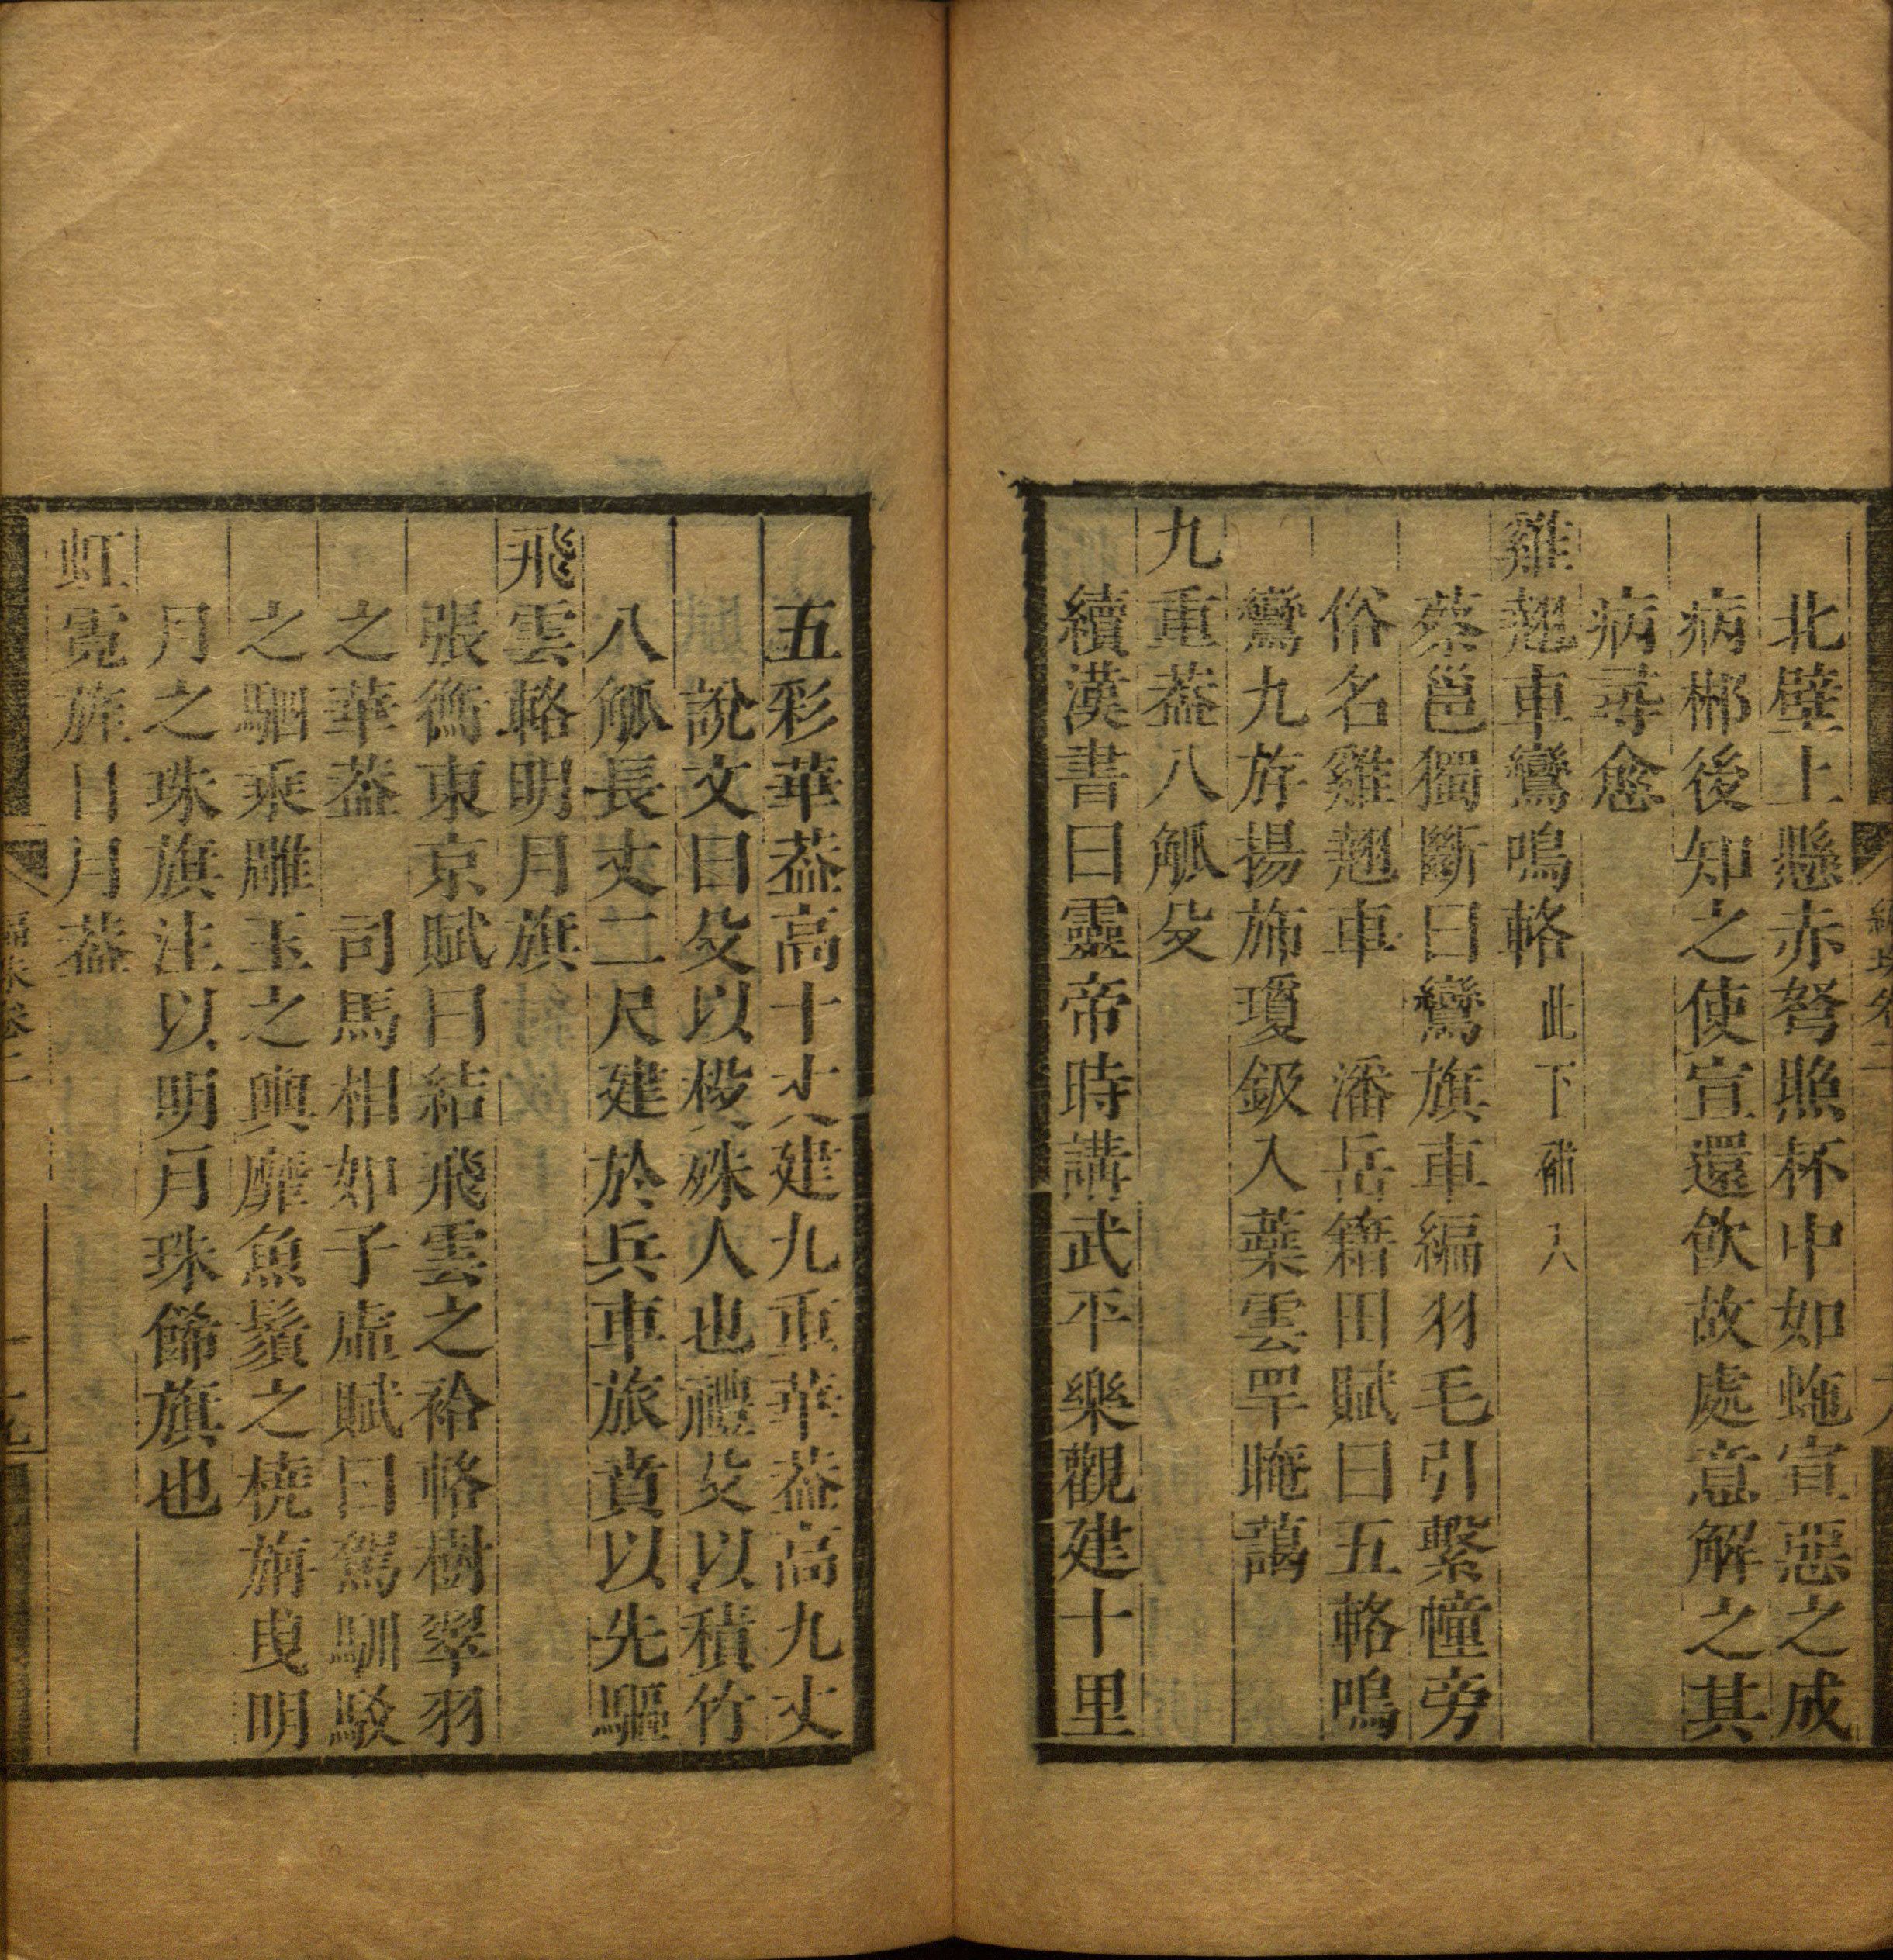 北壁上懸赤弩照杯中如虵宣惡之成
病郴後知之使宣還飲故處意解之其
病尋愈
雞翹車鸞鳴輅此下補入
蔡邕獨斷曰鸞旗車編羽毛引繫幢旁
俗名雞翹車　潘岳籍田賦曰五輅鳴
鸞九旂揚斾瓊鈒入蘂雲罕晻藹
九重葢八觚殳
續漢書曰靈帝時講武平樂觀建十里
五彩華葢高十丈建九重華葢高九丈
說文曰殳以杸殊人也禮殳以積竹
八觚長丈二尺建於兵車旅賁以先驅
飛雲輅明月旗
張衡東京賦曰結飛雲之袷輅樹翠羽
之華葢　司馬相如子虛賦曰駕馴駮
之駟乘雕玉之輿靡魚鬚之橈旃曳明
月之珠旗注以明月珠餙旗也
虹霓旌日月葢
編珠卷二